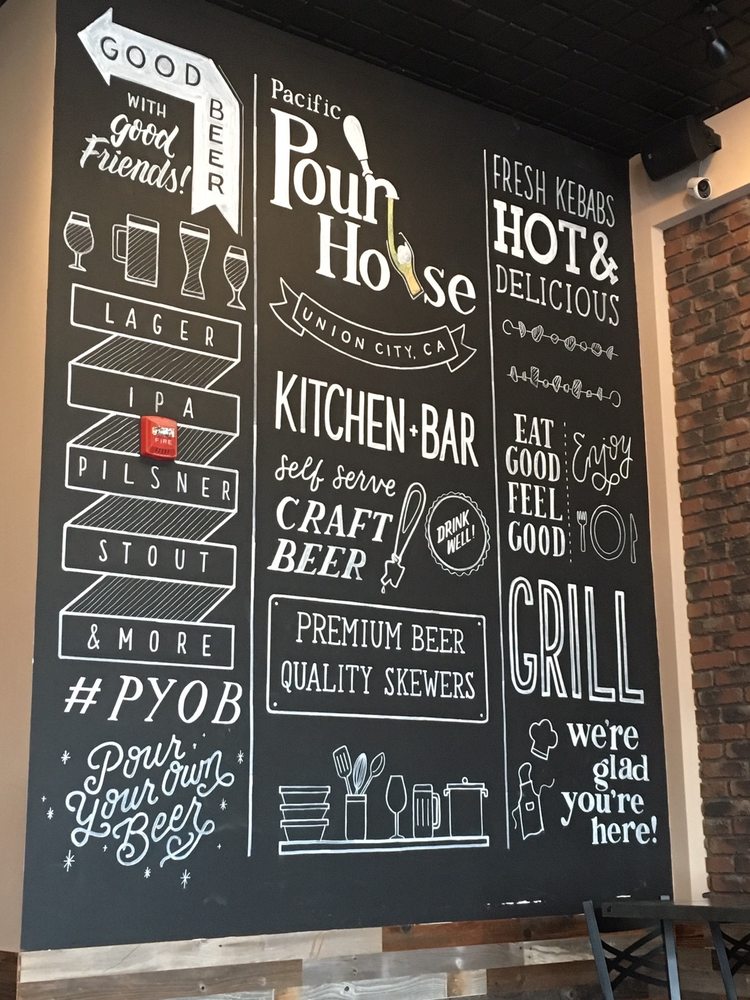 GOOD
BEER
WITH
Good
Friends!
LAGER
IPA
FIRE
PILSNER
STOUT
& MORE
#PYOB
Pour
Your Own
Beer
Pacific
Pour
House
UNION CITY, CA
KITCHEN + BAR
self serve
CRAFT
BEER
DRINK
WELL!
PREMIUM BEER
QUALITY SKEWERS
FRESH KEBABS
HOT &
DELICIOUS
EAT
GOOD
FEEL
GOOD
Enjoy
GRILL
we're
glad
you're
here!